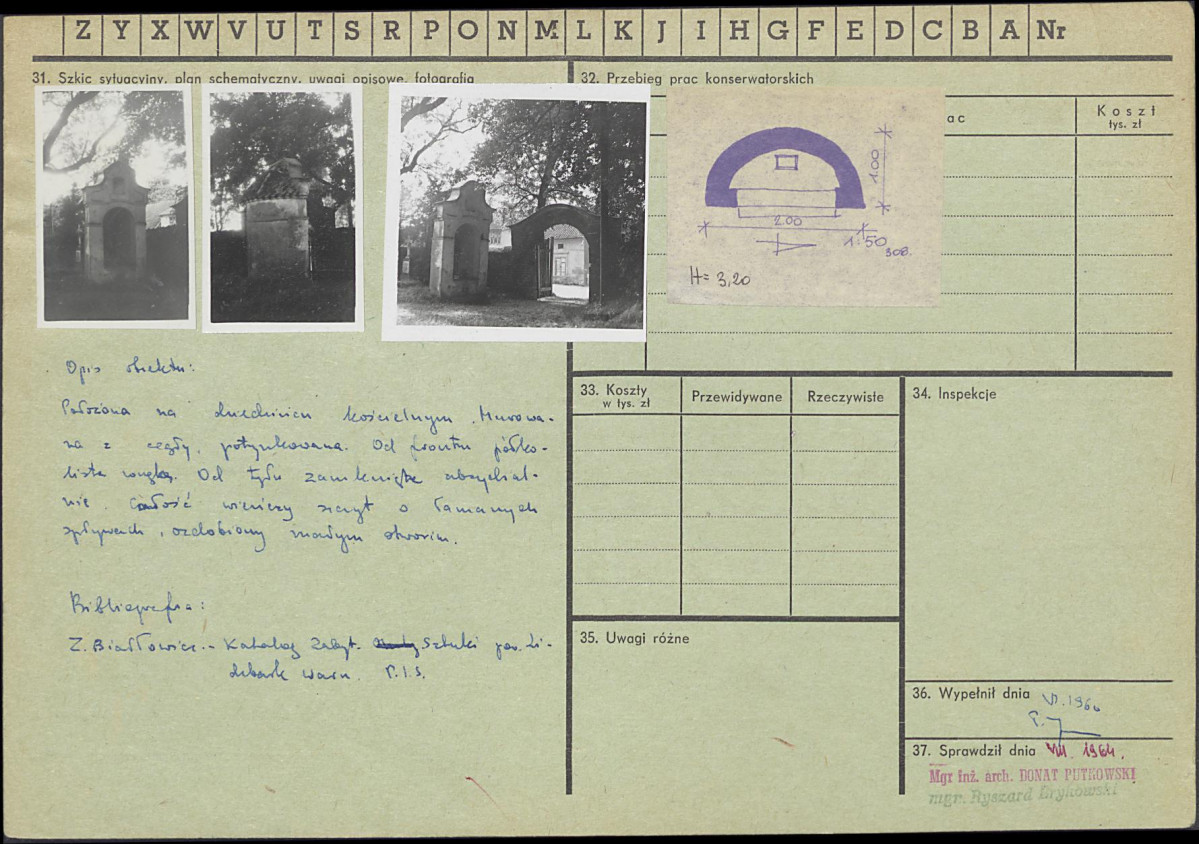 Z Y X W V U T S R P O N M L K J I H G F E D C B A Nr
31. Szkic sytuacyjny, plan schematyczny, uwagi opisowe, fotografia
32. Przebieg prac konserwatorskich
ac
Koszt
tys. zł
1.00
200
1:50
308.
H= 3,20
Opis obiektu:
Położona na dziedzińcu kościelnym. Murowa-
na z cegły, potynkowana. Od frontu półko-
lista wnęka. Od tyłu zamknięta absydial-
nie. Całość wieńczy szczyt o łamanych
spływach, ozdobiony małym otworem.
Bibliografia:
Z. Białłowicz - Katalog Zabyt. Sztuki pow. Li-
dzbark Warm. P.I.S.
33. Koszty
w tys. zł
Przewidywane
Rzeczywiste
34. Inspekcje
35. Uwagi różne
36. Wypełnił dnia
37. Sprawdził dnia VII. 1964.
Mgr inż. arch. DONAT PUTKOWSKI
mgr. Ryszard